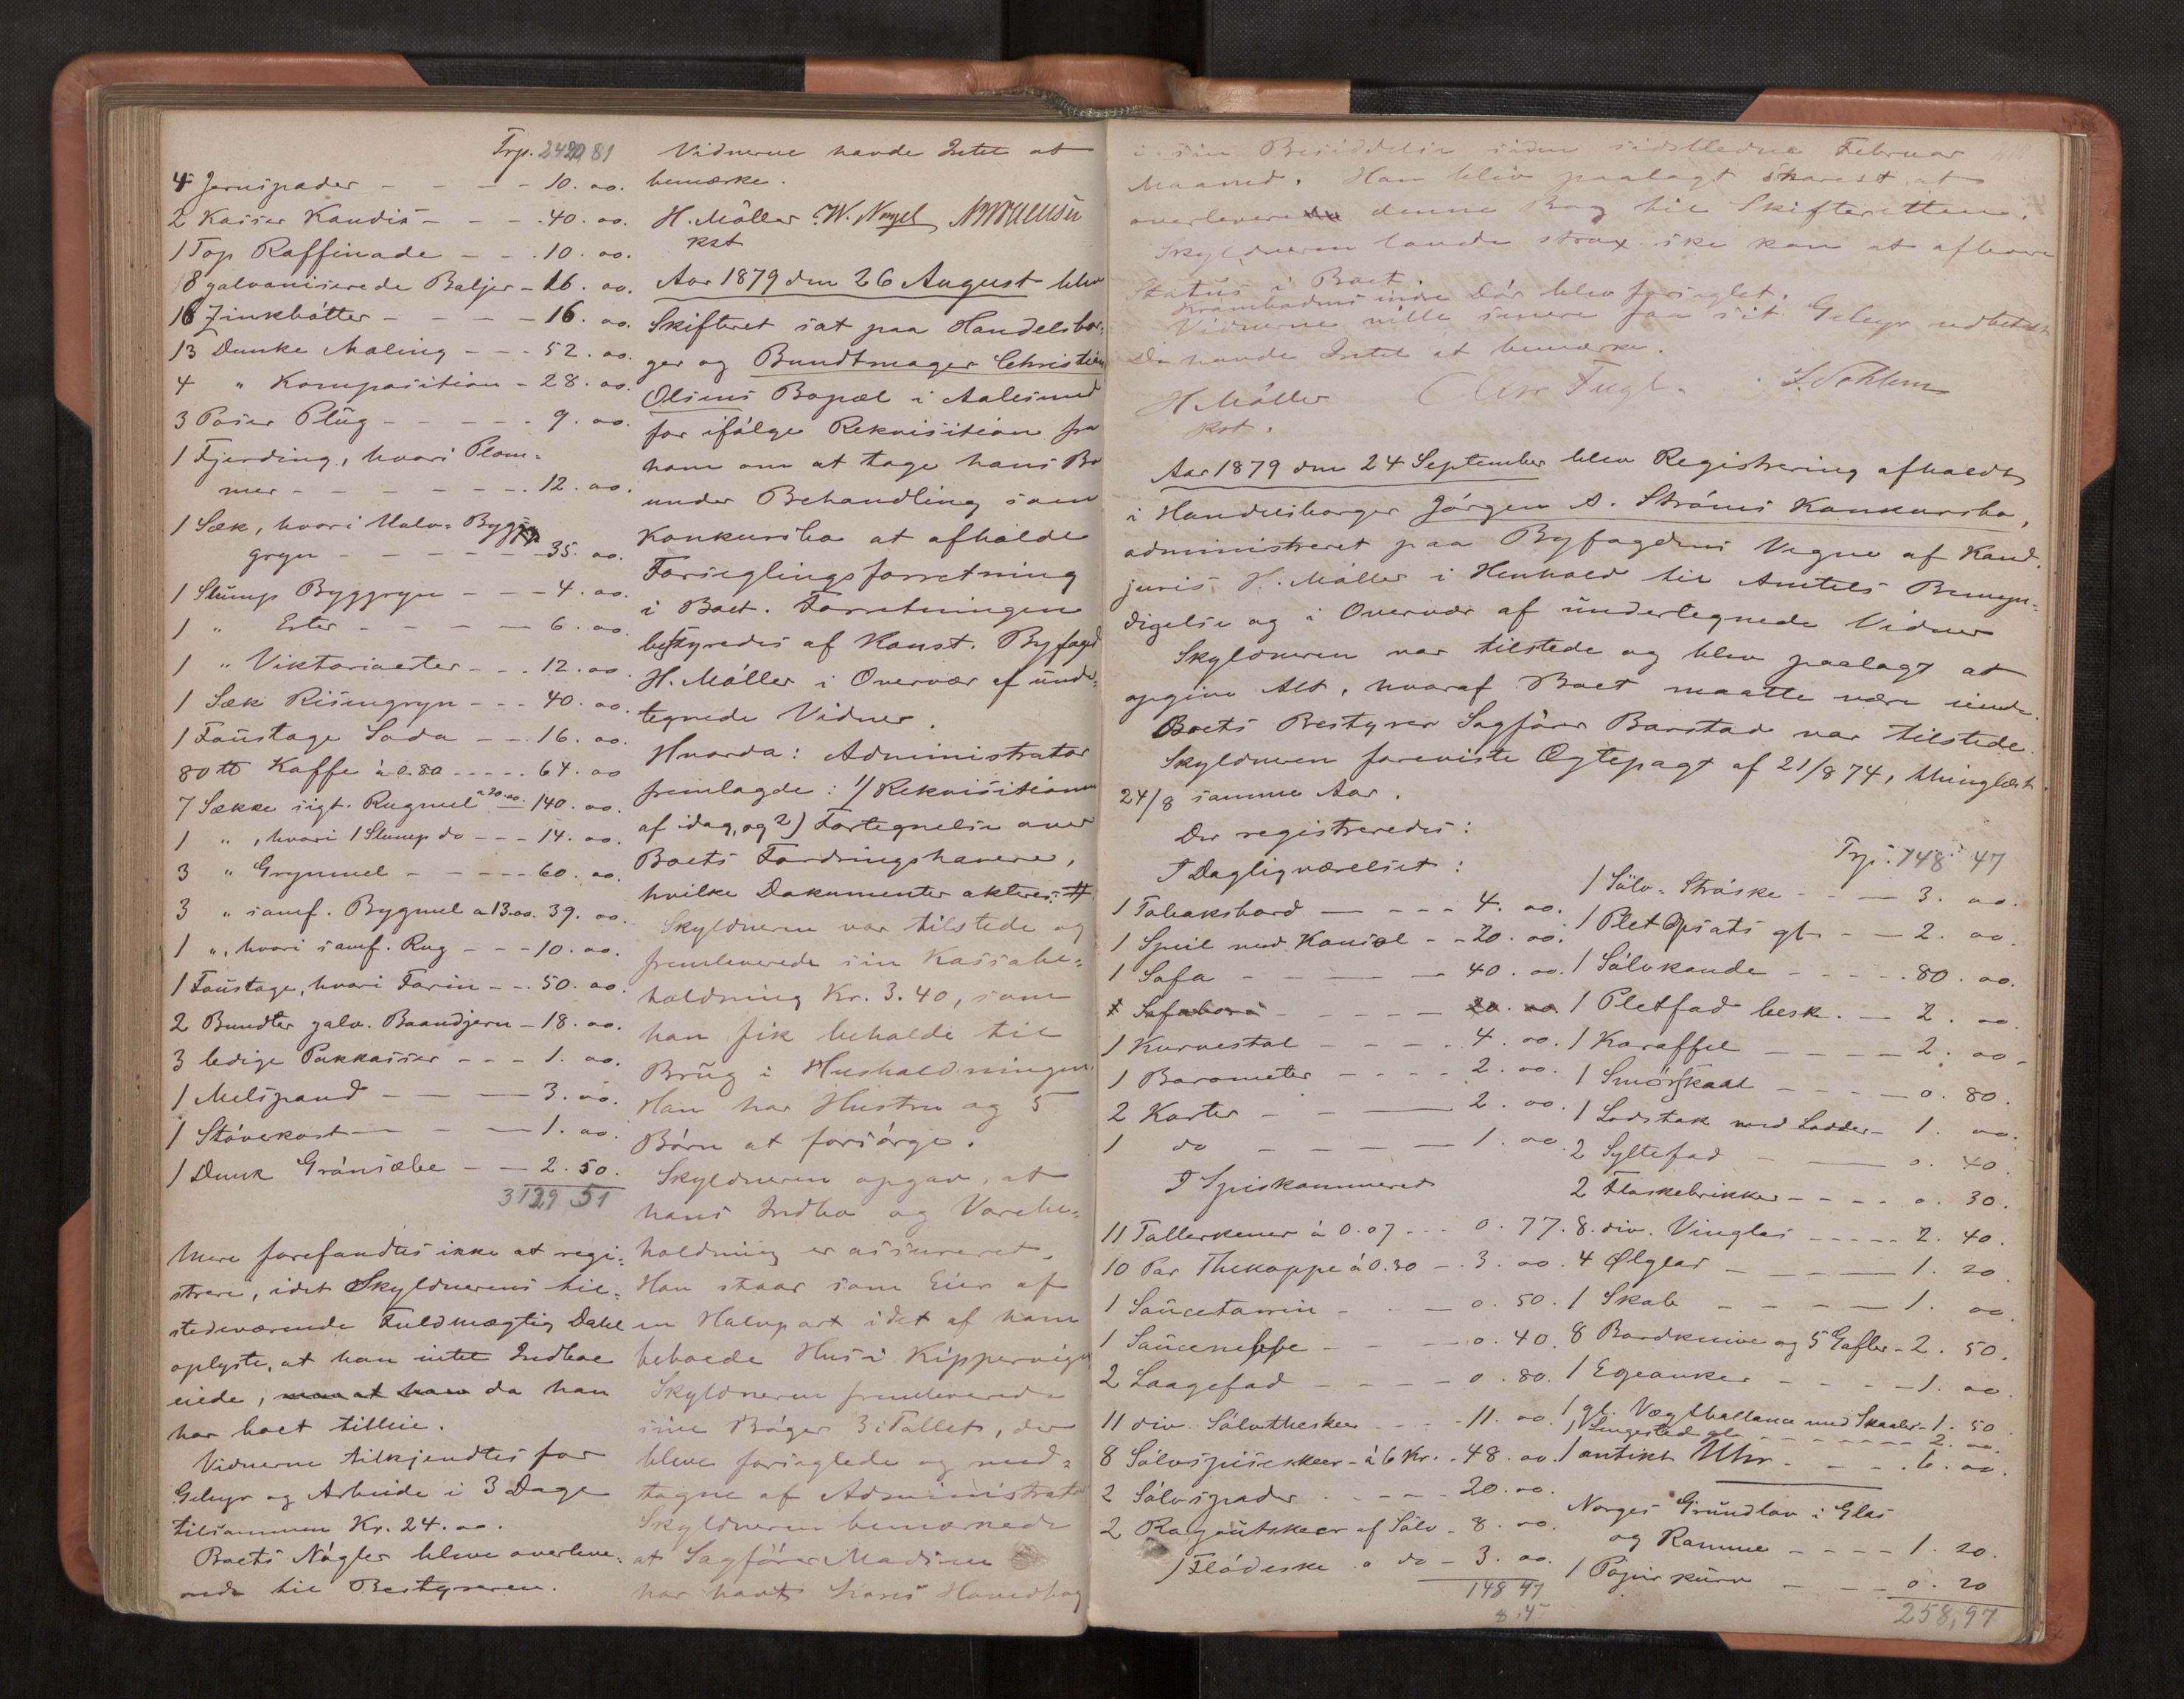 Trp. 2420 81
4 Jernspader - - - - 10. 00.
2 Kasser Kandis - - - 40. 00.
1 Top Raffinade - - - 10. 00.
8 galvaniserede Baljer - 16. 00.
16 Zinkbøtter - - - - 16. 00.
13 Dunke Maling - - - 52. 00.
4 " Komposition - 28. 00.
3 Poser Plüg - - - - - 9. 00.
1 Fjerding, hvori Plom-
mer - - - - - - 12. 00.
1 Sæk, hvori Halv- Bygg-
gryn - - - - - - 35. 00.
1 Slump Byggryn - - - 4. 00.
1 " Erter - - - - - 6. 00.
1 " Viktoriaerter - - - 12. 00.
1 Sæk Risengryn - - - 40. 00.
1 Foustage Soda - - - 16. 00.
80 ℔ Kaffe à 0.80 - - - - 64. 00
7 Sække sigt. Rugmel à 20.00. 140. 00.
1 " , hvori 1 Slump do - - - 14. 00.
3 " Grynmel - - - - - 60. 00.
3 " samf. Bygmel a 13.00. 39. 00.
1 ", hvori samf. Rug - - - 10. 00.
1 Foustage, hvori Farin - - - 50. 00.
2 Bundter galv. Baandjern - 18. 00.
3 ledige Pakkasser - - - 1. 00.
1 Melspand - - - - 3. 00.
1 Støvekost - - - - 1. 00.
1 Dunk Grønsæbe - - - 2. 50.
3129 51
Mere forefandtes ikke at regi-
strere, idet Skyldnerens til-
stedeværende Fuldmægtig Dahl
oplyste, at han intet Indboe
eiede, da han
har boet tilleie.
Vidnerne tilkjendtes for
Gebyr og Arbeide i 3 Dage
tilsammen Kr. 24. 00.
Boets Nøgler bleve overleve-
rede til Bestyreren.
Vidnerne havde Intet at
bemærke.
H. Møller W. Nagel
kst
Aar 1879 den 26 August blev
Skifteret sat paa Handelsbor-
ger og Bundtmager Christian
Olsens Bopæl i Aalesund
for ifølge Rekvisition fra
ham om at tage hans Bo
under Behandling som
Konkursbo at afholde
Forseglingsforretning
i Boet. Forretningen
bestyredes af Konst. Byfoged
H. Møller i Overvær af unde-
tegnede Vidner.
Hvorda: Administrator
fremlagde: 1/ Rekvisitionen
af idag, og 2) Fortegnelse over
Boets Fordringshavere,
hvilke Dokumenter akteres. #
Skyldneren var tilstede og
fremleverede sin Kassabe-
holdning Kr. 3.40, som
han fik beholde til
Brüg i Husholdningen.
Han har Hustru og 5
Børn at forsørge.
Skyldneren opgav, at
hans Indbo og Varebe-
holdning er assureret.
Han staar som Eier af
en Halvpart i det af ham
beboede Hus i Kippervigen
Skyldneren fremleverede
sine Bøger 3 i Tallet, der
bleve forseglede og mod-
tagne af Administrator
Skyldneren bemærkede
at Sagfører Madsen
har havt hans Hovedbog
i sin Besiddelse siden sidstledne Februar
Maaned. Han blev paalagt snarest at
overlevere denne Bog til Skifteretten.
Skyldneren lovede strax ske kan at aflevere
Status i Boet.
Krambodens indre Dør blev forseglet.
Vidnerne ville senere faa sit Gebyr udbetalt
De havde Intet at bemærke.
H Møller
kst.
Aar 1879 den 24 September blev Registrering afholdt
i Handelsborger Jørgen A. Strøms Konkursbo,
administreret paa Byfogdens Vegne af Kand.
juris. H. Møller i Henhold til Amtets Bemyn-
digelse og i Overvær af undertegnede Vidner
Skyldneren var tilstede og blev paalagt at
opgive Alt, hvoraf Boet maatte være eiende.
Boets Bestyrer Sagfører Barstad var tilstede.
Skyldneren foreviste Ægtepagt af 21/8 74, thinglæst
24/8 samme Aar.
Der registreredes:
I Dagligværelset:
1 Tobaksbord - - - - 4. 00.
1 Speil med Konsol - - 20. 00.
1 Sofa - - - - 40. 00.
1 Sofabord - - - - - 20. 00
1 Kurvestol - - - - 4. 00.
1 Barometer - - - - 2. 00.
2 Karter - - - 2. 00.
1 do - - - - 1. 00.
I Spiskammeret
11 Tallerkener à 0.07 - - - 0. 77.
10 Par Thekoppe à 0.30 - - 3. 00.
1 Saucetarrin - - - 0. 50.
1 - - - 0. 40.
2 Laagefad - - - - 0. 80.
11 div. Sølvtheskeer - - - - 11. 00.
8 Sølvspiseskeer - à 6 Kr. - 48. 00.
2 Sølvspader - - - - 20. 00.
2 Ragoutskeer af Sølv - 8. 00.
1 Flødeske a do - 3. 00.
148 47
Trp: 148 47
1 Sølv- Strøske - - - 3. 00.
1 Plet Opsats gl. - - 2. 00.
1 Sølvkande - - - - 80. 00.
1 Pletfad besk. - 2. 00.
1 Karaffel - - - - 2. 00.
1 Smørskaal - - - 0. 80.
1 Lodstok med Lodder - 1. 00.
2 Syltefad - - 0. 40.
2 Flaskebrikker - - - - 0. 30.
8. div. Vinglas - - - - - 2. 40.
4 Ølglas - - - - 1. 20.
1 Skab - - - - 1. 00
8 Bordknive og 5 Gafler - 2. 50.
1 Egeanker - - - - 1. 00.
1 gl. Vægtballance med Skaaler - 1. 50
1 Sengested gl. - - - - - - 2. 00.
1 antikt Uhr - - - - 6. 00.
Norges Grundlov i Glas
og Ramme - - - - 1. 20.
1 Papirkurv - - - 0. 20
258,97